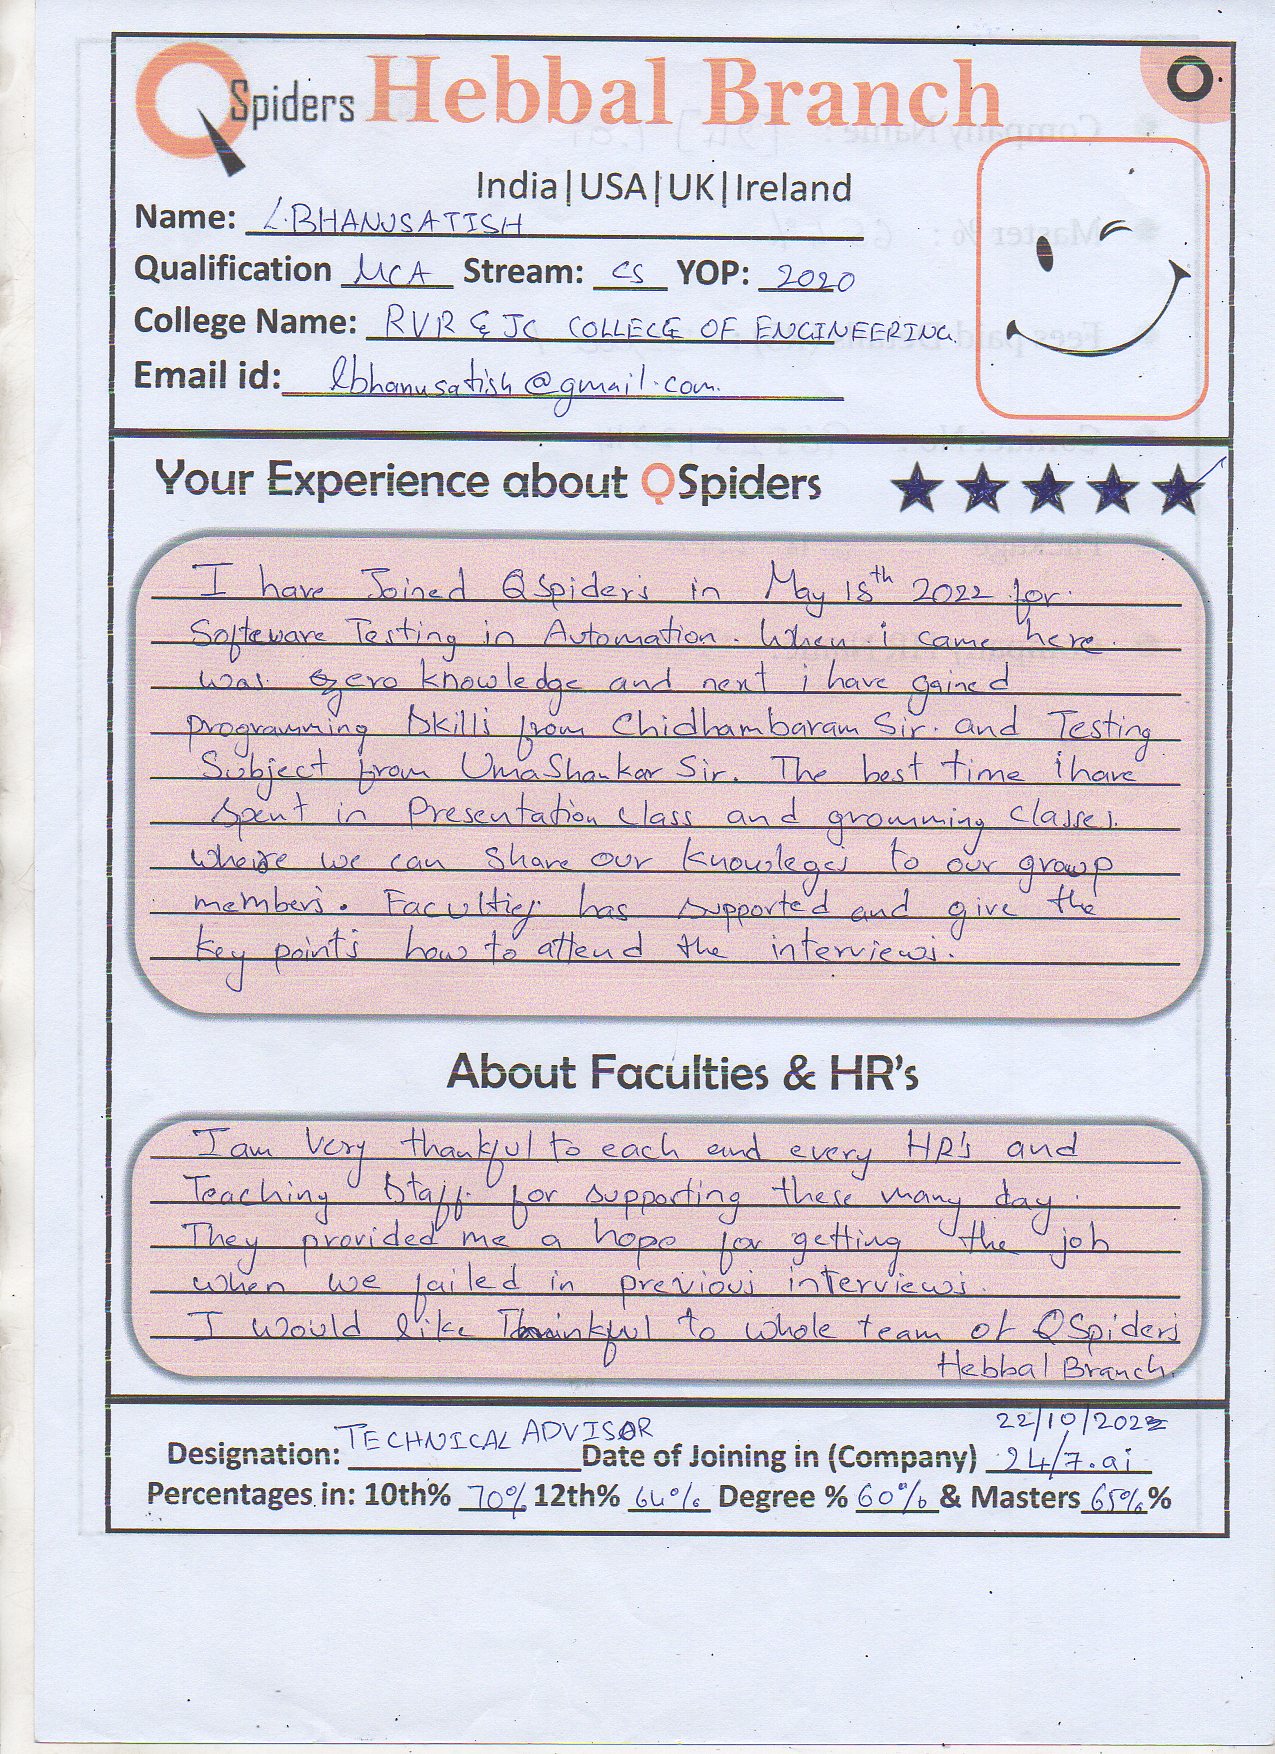 QSpiders Hebbal Branch
India|USA|UK|Ireland
Name: L.BHANUSATISH
Qualification MCA Stream: CS YOP: 2020
College Name: RVR & JC COLLEGE OF ENGINEERING
Email id: lbhanusatish@gmail.com.
Your Experience about QSpiders
I have Joined QSpiders in May 18th 2022 for
Software Testing in Automation. When i came here
was zero knowledge and next i have gained
programming skills from Chidhambaram Sir. and Testing
Subject from UmaShankar Sir. The best time i have
spent in Presentation class and gromming classes.
where we can share our knowleges to our group
members. Faculties has supported and give the
key points how to attend the interviews.
About Faculties & HR's
I am Very thankful to each and every HR's and
Teaching Staff for supporting these many day.
They provided me a hope for getting the job
when we failed in previous interviews.
I would like Thankful to whole team of QSpiders
Hebbal Branch.
22/10/2022
Designation: TECHNICAL ADVISOR Date of Joining in (Company) 24/7.ai
Percentages in: 10th% 70% 12th% 64% Degree % 60% & Masters 65% %